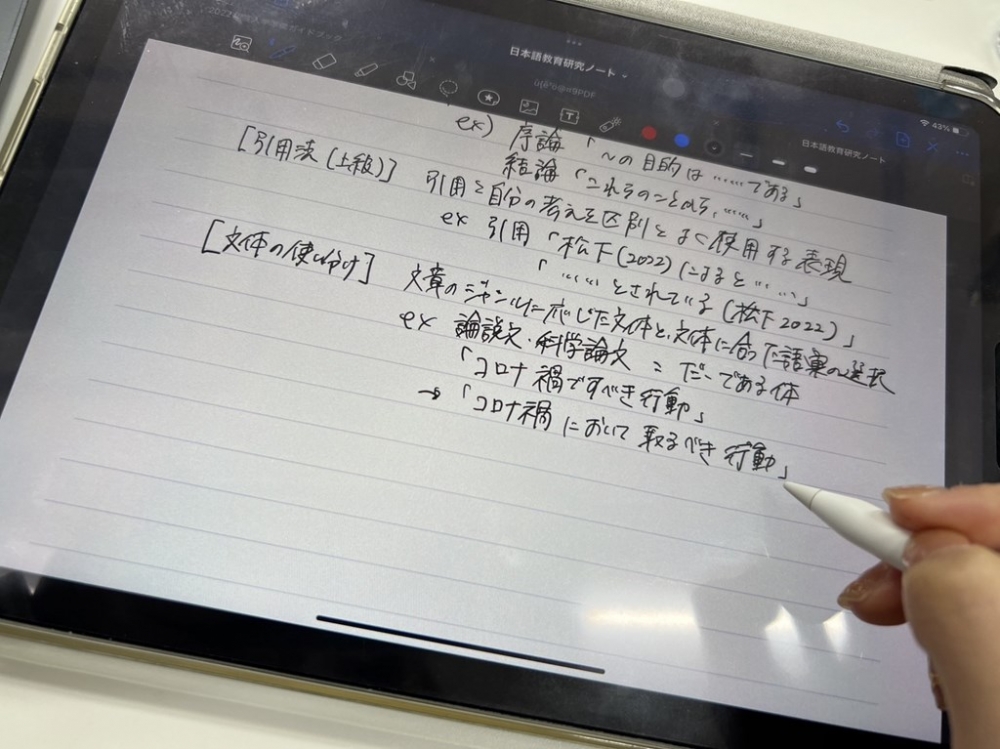 日本語教育研究ノート
43%
日本語教育研究ノート
ex) 序論「〜の目的は……である」
結論「これらのことから、……」
[引用法(上級)] 引用と自分の考えを区別してよく使用する表現
ex 引用「松下(2022)によると……」
「……とされている(松下2022)」
[文体の使い分け] 文章のジャンルに応じた文体と、文体に合った語彙の選択
ex 論説文・科学論文:だ・である体
「コロナ禍ですべき行動」
→「コロナ禍において取るべき行動」